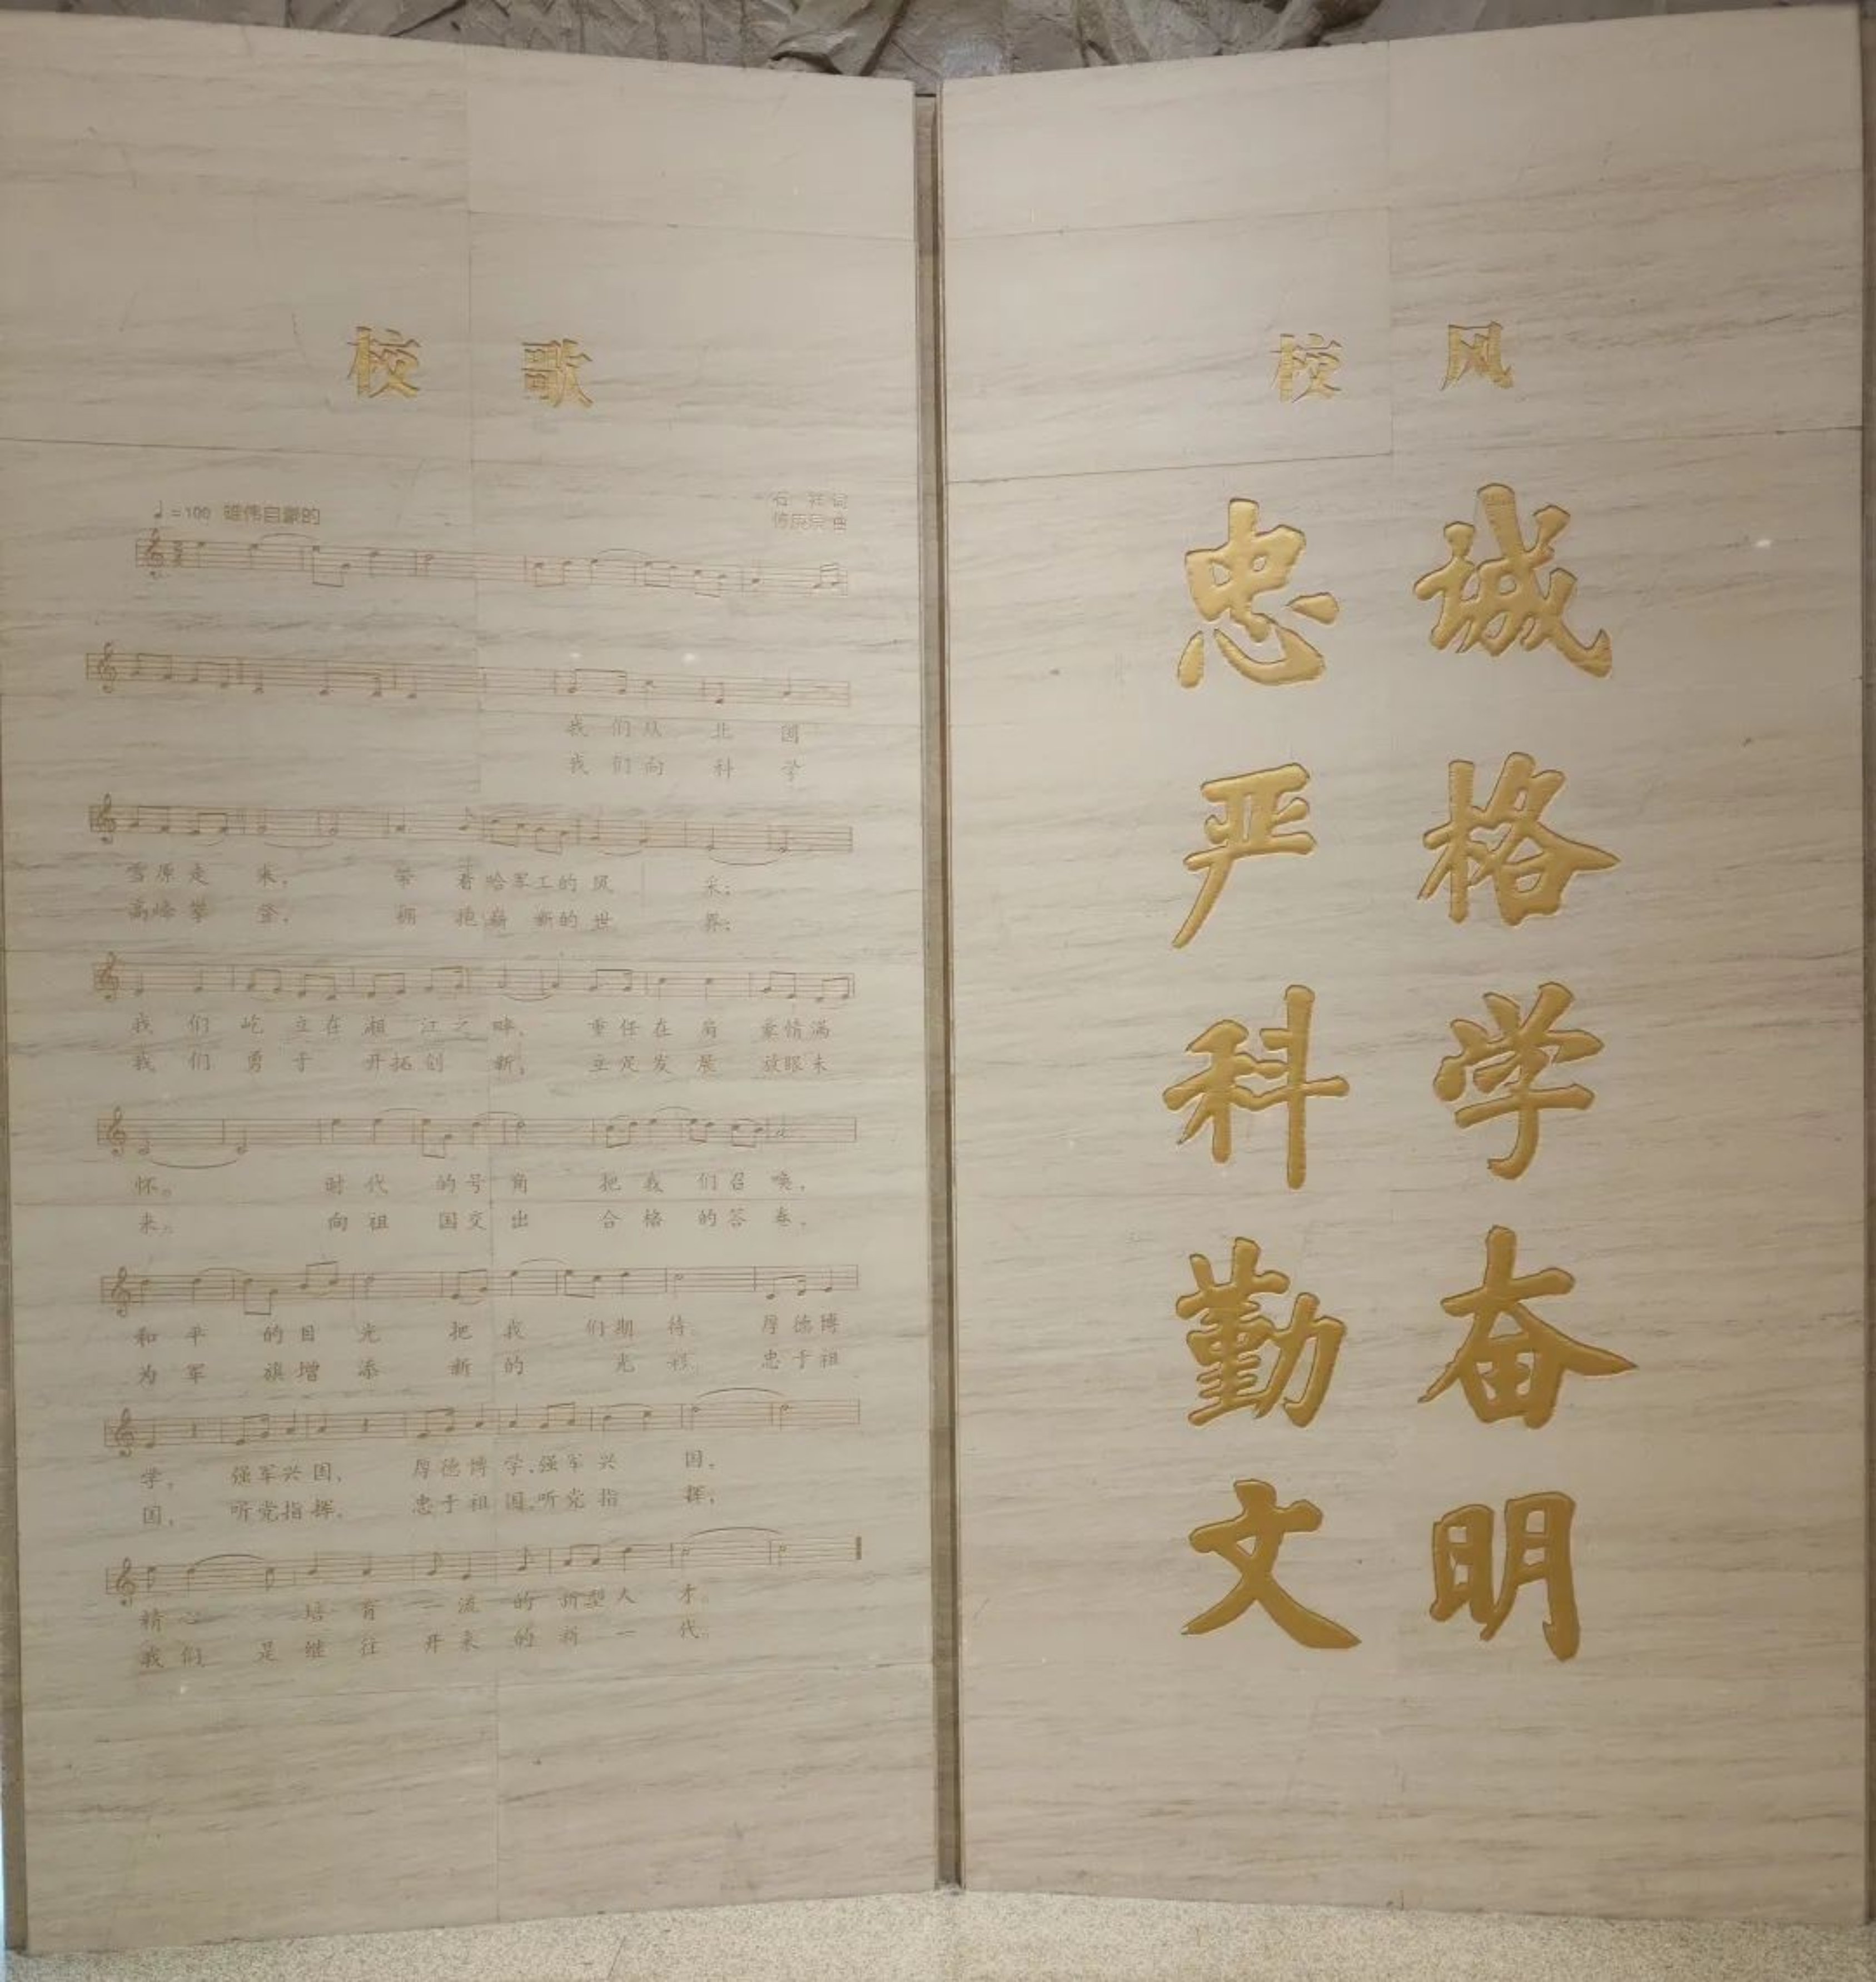 校歌
♩=100 雄伟自豪的
石祥 词
傅庚辰 曲
我们从北国
我们向科学
雪原走来，带着哈军工的风采；
高峰攀登，拥抱崭新的世界；
我们屹立在湘江之畔，重任在肩豪情满
我们勇于开拓创新，立足发展放眼未
怀。时代的号角把我们召唤，
来。向祖国交出合格的答卷，
和平的目光把我们期待。厚德博
为军旗增添新的光彩。忠于祖
学，强军兴国，厚德博学，强军兴国。
国，听党指挥，忠于祖国，听党指挥，
精心培育一流的新型人才。
我们是继往开来的新一代。
校风
忠诚
严格
科学
勤奋
文明